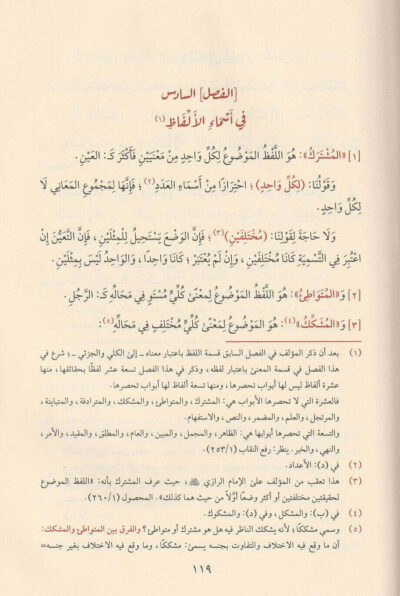 [الفصل] السادس
في أَسْمَاءِ الأَلْفَاظِ (١)
[١] «المُشْتَرَكُ»: هُوَ اللَّفْظُ المَوْضُوعُ لِكُلِّ وَاحِدٍ مِنْ مَعْنَيَيْنِ فَأَكْثَرَ كَـ: العَيْنِ.
وَقَوْلُنَا: (لِكُلِّ وَاحِدٍ) ؛ احْتِرَازًا مِنْ أَسْمَاءِ العَدَدِ(٢) ؛ فَإِنَّهَا لِمَجْمُوعِ المَعَانِي لَا
لِكُلِّ وَاحِدٍ.
وَلَا حَاجَةَ لِقَوْلِنَا: (مُخْتَلِفَيْنِ)(٣) ؛ فَإِنَّ الوَضْعَ يَسْتَحِيلُ لِلْمِثْلَيْنِ ، فَإِنَّ التَّعَيُّنَ إِنْ
اعْتُبِرَ فِي التَّسْمِيَةِ كَانَا مُخْتَلِفَيْنِ ، وَإِنْ لَمْ يُعْتَبَرْ ؛ كَانَا وَاحِدًا ، وَالوَاحِدُ لَيْسَ بِمِثْلَيْنِ .
[٢] وَ«المُتَوَاطِئُ»: هُوَ اللَّفْظُ المَوْضُوعُ لِمَعْنًى كُلِّيٍّ مُسْتَوٍ فِي مَحَالِّهِ كَـ: الرَّجُلِ.
[٣] وَ«المُشَكِّكُ»(٤): هُوَ المَوْضُوعُ لِمَعْنًى كُلِّيٍّ مُخْتَلِفٍ فِي مَحَالِّهِ(٥):
(١) بعد أن ذكر المؤلف في الفصل السابق قسمة اللفظ باعتبار معناه ـ إلى الكلي والجزئي ـ؛ شرع في
هذا الفصل في قسمة المعنى باعتبار لفظه، وذكر في هذا الفصل تسعة عشر لفظًا بحقائقها، منها
عشرة ألفاظ ليس لها أبواب تحصرها، ومنها تسعة ألفاظ لها أبواب تحصرها.
فالعشرة التي لا تحصرها الأبواب هي: المشترك، والمتواطئ، والمشكك، والمترادفة، والمتباينة،
والمرتجل، والعلم، والمضمر، والنص، والاستفهام.
والتسعة التي تحصرها أبوابها هي: الظاهر، والمجمل، والمبين، والعام، والمطلق، والمقيد، والأمر،
والنهي، والخبر. ينظر: رفع النقاب (٢٥٣/١)
(٢) في (د): الأعداد.
(٣) هذا تعقب من المؤلف على الإمام الرازي، حيث عرف المشترك بأنه: «اللفظ الموضوع
لحقيقتين مختلفتين أو أكثر وضعًا أوّلاً من حيث هما كذلك». المحصول (٢٦٠/١)
(٤) في (ب): والمشكل، وفي (د): والمشكوك.
(٥) وسمي مشككًا؛ لأنه يشكك الناظر فيه هل هو مشترك أو متواطئ؟ والفرق بين المتواطئ والمشكك:
أن ما وقع فيه الاختلاف والتفاوت بجنسه يسمئ: مشككًا، وما وقع فيه الاختلاف بغير جنسه=
١١٩